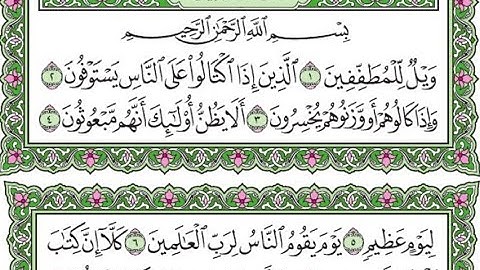 بِسْمِ ٱللَّهِ ٱلرَّحْمَٰنِ ٱلرَّحِيمِ
وَيْلٌ لِّلْمُطَفِّفِينَ ١ ٱلَّذِينَ إِذَا ٱكْتَالُوا۟ عَلَى ٱلنَّاسِ يَسْتَوْفُونَ ٢
وَإِذَا كَالُوهُمْ أَو وَّزَنُوهُمْ يُخْسِرُونَ ٣ أَلَا يَظُنُّ أُو۟لَٰٓئِكَ أَنَّهُم مَّبْعُوثُونَ ٤
لِيَوْمٍ عَظِيمٍ ٥ يَوْمَ يَقُومُ ٱلنَّاسُ لِرَبِّ ٱلْعَٰلَمِينَ ٦ كَلَّآ إِنَّ كِتَٰبَ